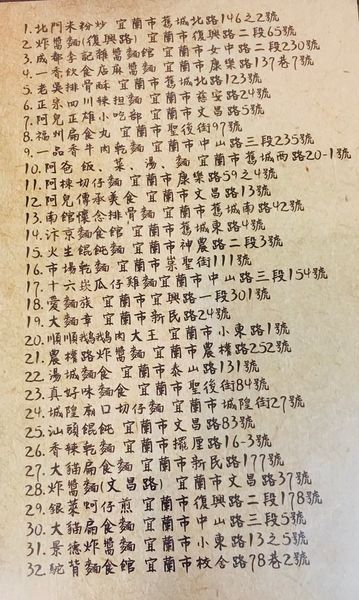 1. 北門米粉炒 宜蘭市舊城北路146之2號
2. 炸醬麵(復興路) 宜蘭市復興路二段65號
3. 成都李記雜醬麵館 宜蘭市女中路二段230號
4. 一香飲食店麻醬麵 宜蘭市康樂路137巷7號
5. 老吳排骨酥 宜蘭市舊城北路123號
6. 正宗四川辣担麵 宜蘭市慈安路24號
7. 阿兒正雄小吃部 宜蘭市文昌路5號
8. 福州扁食丸 宜蘭市聖後街97號
9. 一品香牛肉乾麵 宜蘭市中山路三段235號
10. 阿爸 飯、菜、湯、麵 宜蘭市舊城西路20-1號
11. 阿棟切仔麵 宜蘭市康樂路59之4號
12. 阿兒傳承美食 宜蘭市文昌路13號
13. 南館懷念排骨麵 宜蘭市舊城南路42號
14. 汴京麵食館 宜蘭市舊城東路4號
15. 火生餛飩麵 宜蘭市神農路二段3號
16. 市場乾麵 宜蘭市崇聖街111號
17. 十六崁瓜仔雞麵 宜蘭市中山路三段154號
18. 愛麵族 宜蘭市宜興路一段301號
19. 大麵章 宜蘭市新民路24號
20. 順順鵝鵝肉大王 宜蘭市小東路1號
21. 農權路炸醬麵 宜蘭市農權路252號
22. 湯城麵食 宜蘭市泰山路131號
23. 真好味麵食 宜蘭市聖後街84號
24. 城隍廟口切仔麵 宜蘭市城隍街27號
25. 汕頭餛飩 宜蘭市文昌路83號
26. 香辣乾麵 宜蘭市擺厘路16-3號
27. 大貓扁食麵 宜蘭市新民路177號
28. 炸醬麵(文昌路) 宜蘭市文昌路37號
29. 銀萊蚵仔煎 宜蘭市復興路二段178號
30. 大貓扁食麵 宜蘭市中山路三段5號
31. 景德炸醬麵 宜蘭市小東路13之5號
32. 駝背麵食館 宜蘭市校舍路78巷2號